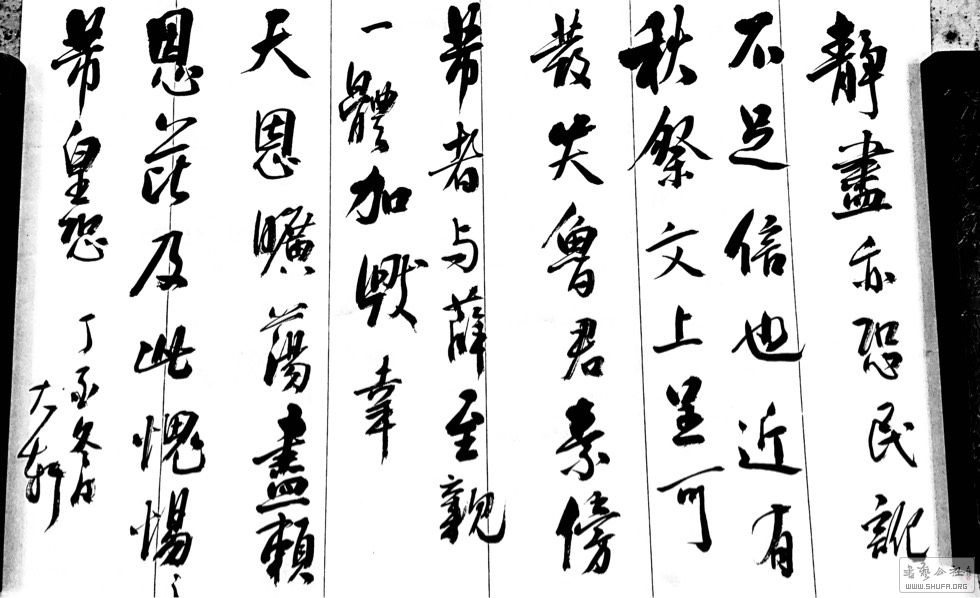 靜盡亦恐民訛
不足信也近有
秋祭文上呈可
發笑魯君素傍
芾者与薛至親
一體加毀幸
天恩曠蕩盡賴
恩芘及此愧惕〻
芾皇恐
丁亥冬日
书艺公社
WWW.SHUFA.ORG